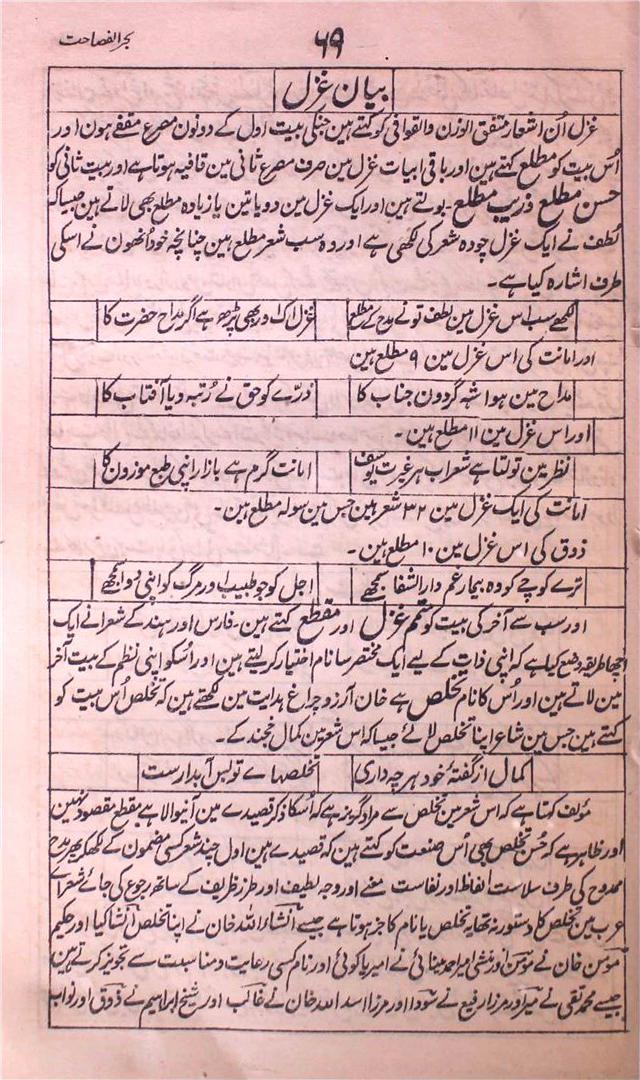 بحر الفصاحت
۶۹
بیان غزل
غزل اُن اشعار متفق الوزن والقوافی کو کہتے ہین جنکی بیت اول کے دونون مصرع مقفے ہون اور
اُس بیت کو مطلع کہتے ہین اور باقی ابیات غزل مین صرف مصرع ثانی مین قافیہ ہوتا ہے اور بیت ثانی کو
حسن مطلع و زیب مطلع ۔ بولتے ہین اور ایک غزل مین دو یا تین یا زیادہ مطلع بھی لاتے ہین جیسا کہ
لطف نے ایک غزل چودہ شعر کی لکھی ہے اور وہ سب شعر مطلع ہین چنانچہ خود اُنھون نے اسکی
طرف اشارہ کیا ہے ۔
لکھے سب اس غزل مین لطف تونے مدح کے مطلع
غزل اک اور بھی پڑھ ہے اگر مداح حضرت کا
اور امانت کی اس غزل مین ۹ مطلع ہین
مداح مین ہوا شہ گردون جناب کا
ذرّے کو حق نے رُتبہ دیا آفتاب کا
اور اس غزل مین ۱۱ مطلع ہین ۔
نظر مین تولتا ہے شعر اب ہر غیرت یوسف
امانت گرم ہے بازار اپنی طبع موزون کا
امانت کی ایک غزل مین ۳۲ شعر ہین جس مین سولہ مطلع ہین ۔
ذوق کی اس غزل مین ۱۰ مطلع ہین ۔
ترے کوچے کو وہ بیمار غم دار الشفا سمجھے
اجل کو جو طبیب اور مرگ کو اپنی دوا سمجھے
اور سب سے آخر کی بیت کو تمم غزل اور مقطع کہتے ہین ۔ فارس اور ہند کے شعرا نے ایک
اچھا طریقہ وضع کیا ہے کہ اپنی ذات کے لیے ایک مختصر سا نام اختیار کر لیتے ہین اور اُسکو اپنی نظم کے بیت آخر
مین لاتے ہین اور اُس کا نام تخلص ہے خان آرزو چراغ ہدایت مین لکھتے ہین کہ تخلص اُس بیت کو
کہتے ہین جس مین شاعر اپنا تخلص لائے جیسا کہ اس شعر مین کمال خجند کے ۔
کمال از گفتۂ خود ہر چہ داری
تخلصہاے تو بس آبدارست
مؤلف کہتا ہے کہ اس شعر مین تخلص سے مراد گریز ہے کہ اُسکا ذکر قصیدے مین آنیوالا ہے مقطع مقصود نہین
اور ظاہر ہے کہ حُسن تخلص بھی اُس صنعت کو کہتے ہین کہ قصیدے مین اول چند شعر کسی مضمون کے لکھکر پھر مدح
ممدوح کی طرف سلاست الفاظ اور نفاست معنے اور وجہ لطیف اور طرز ظریف کے ساتھ رجوع کی جائے شعراے
عرب مین تخلص کا دستور نہ تھا یہ تخلص یا نام کا جز ہوتا ہے جیسے انشاء اللہ خان نے اپنا تخلص انشا کیا اور حکیم
مومن خان نے مومن اور منشی امیر احمد مینائی نے امیر یا کوئی اور نام کسی رعایت و مناسبت سے تجویز کرتے ہین
جیسے محمد تقی نے میر اور مرزا رفیع نے سودا اور مرزا اسد اللہ خان نے غالب اور شیخ ابراہیم نے ذوق اور نواب